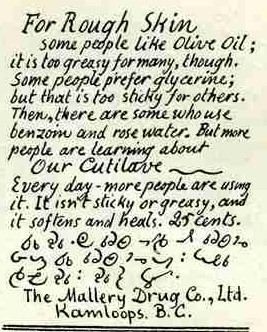 For Rough Skin
some people like Olive Oil;
it is too greasy for many, though.
Some people prefer glycerine;
but that is too sticky for others.
Then, there are some who use
benzoin and rose water. But more
people are learning about
Our Cutilave
Every day - more people are using
it. It isn't sticky or greasy, and
it softens and heals. 25 cents.
The Mallery Drug Co., Ltd.
Kamloops, B.C.